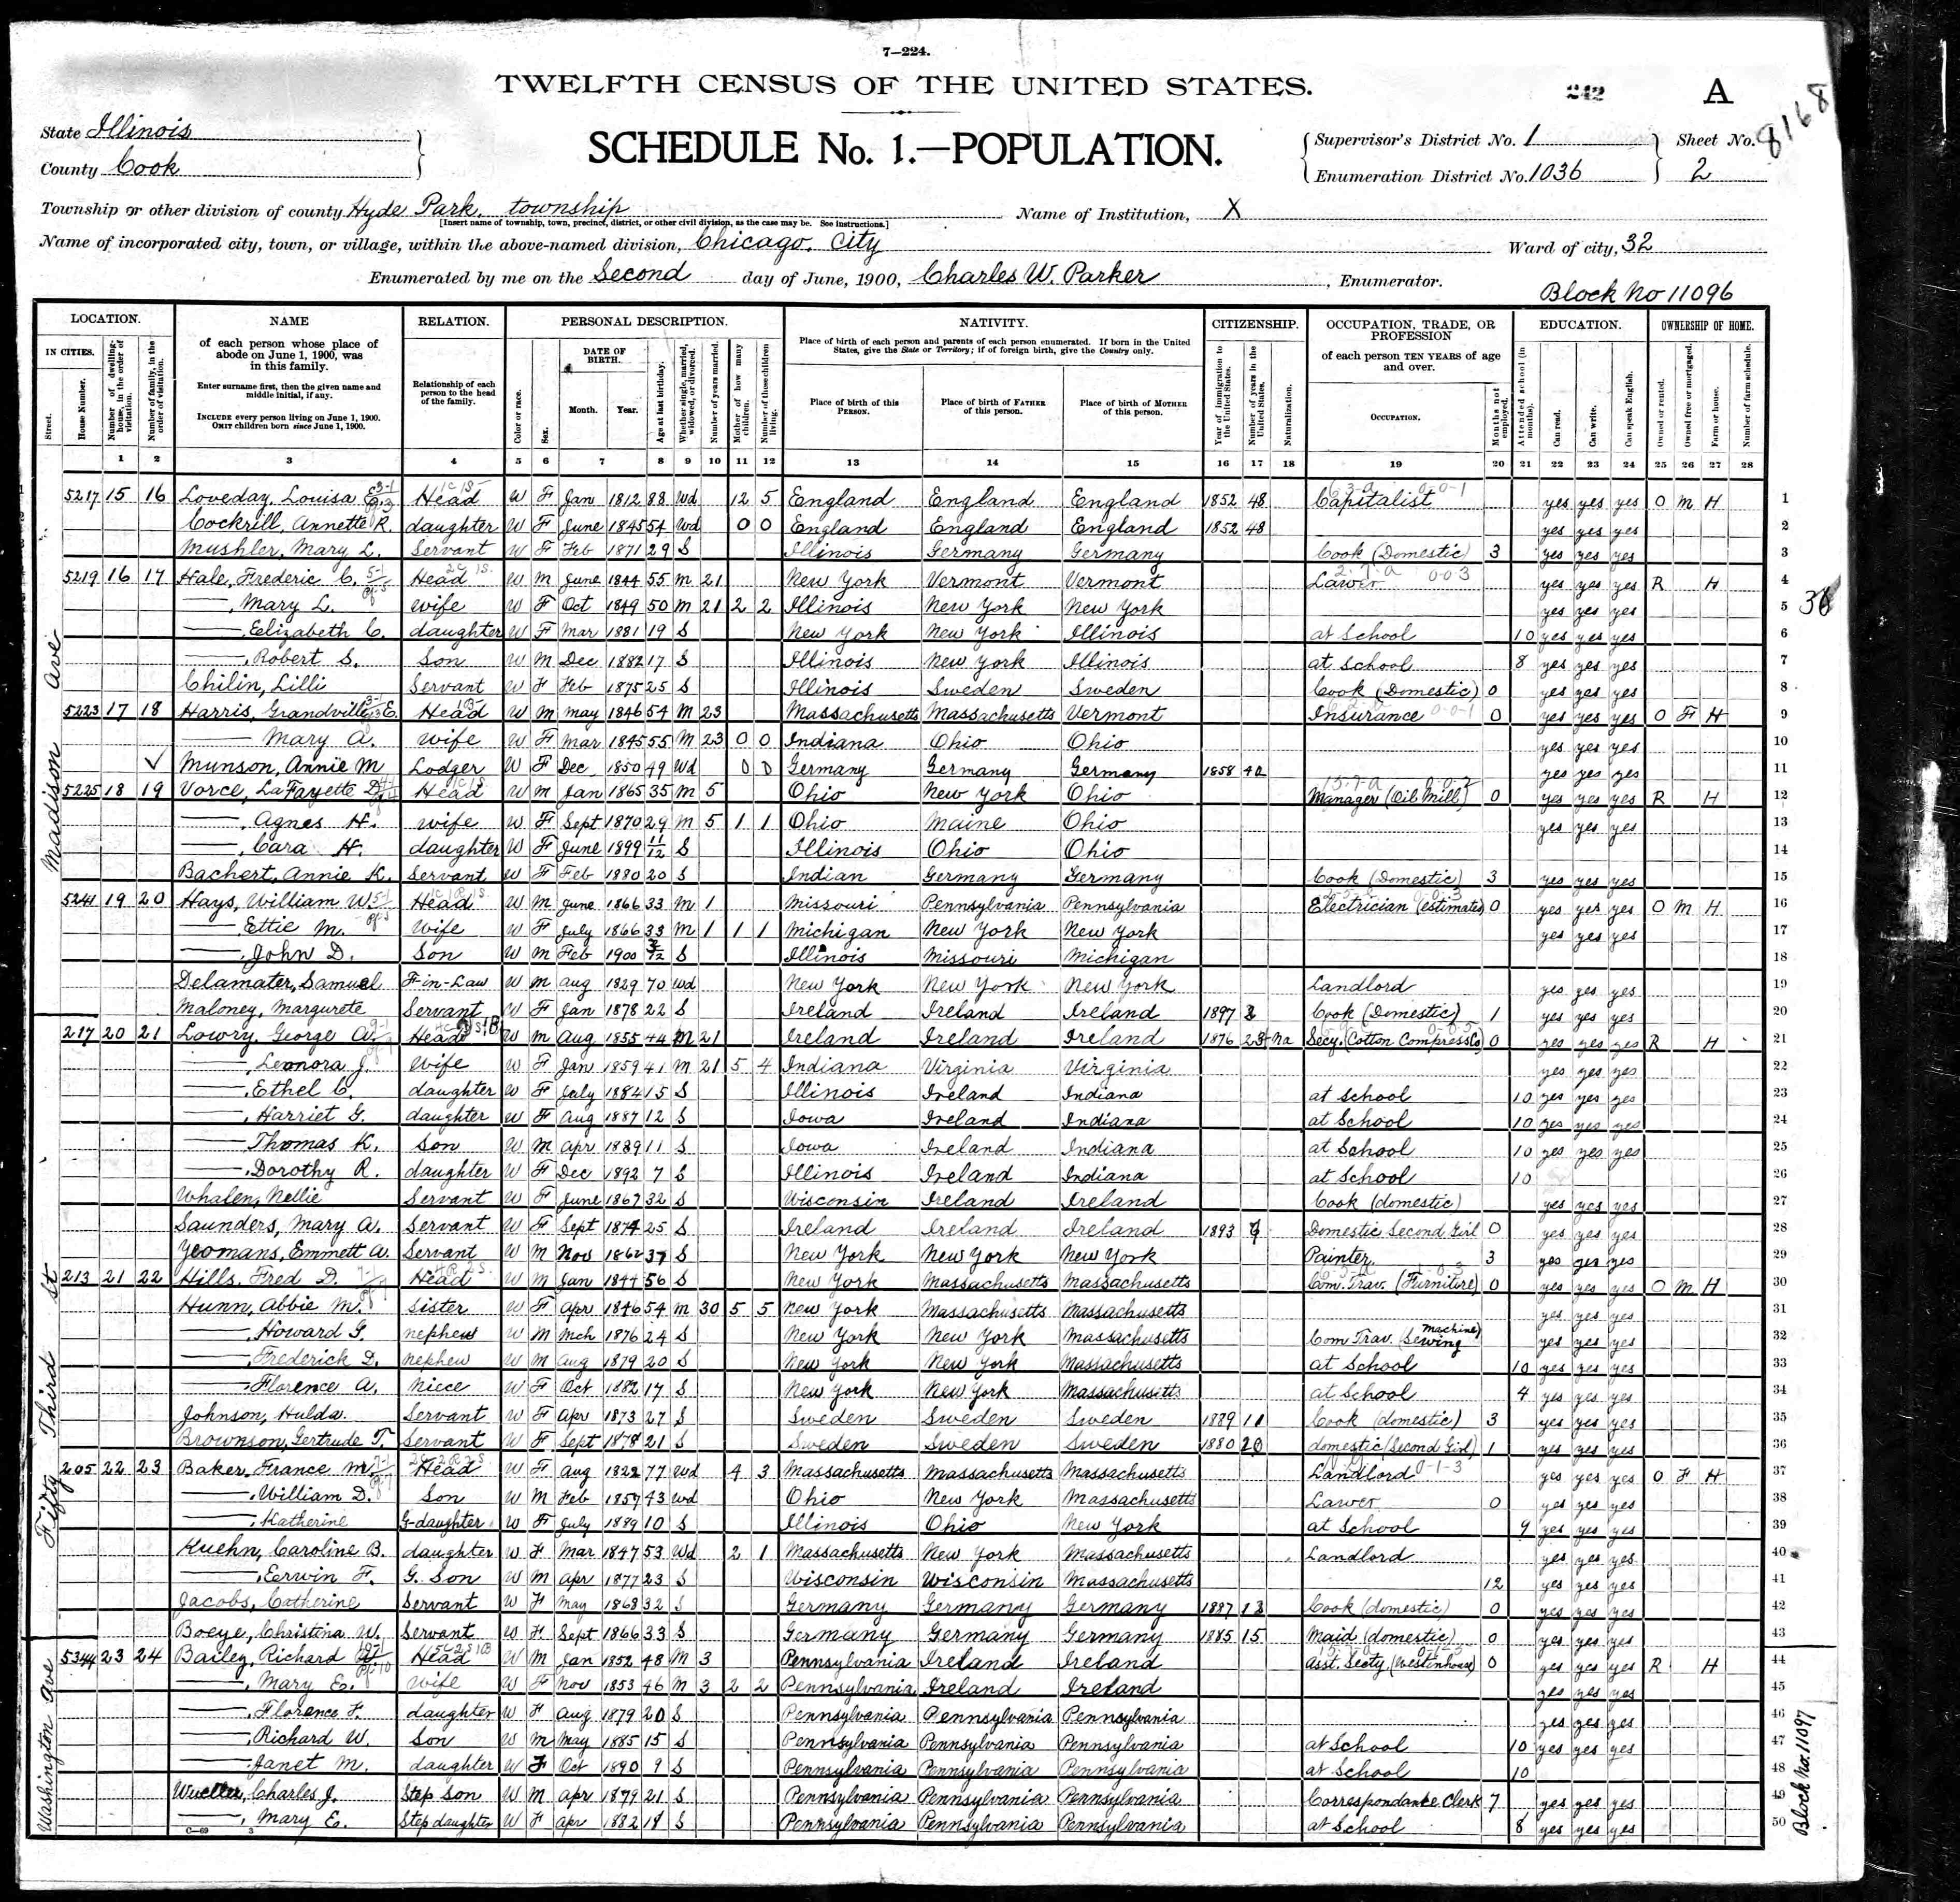 7—224.
TWELFTH CENSUS OF THE UNITED STATES.
242 A
8168
State Illinois
County Cook
SCHEDULE No. 1.—POPULATION.
Supervisor's District No. 1
Enumeration District No. 1036
Sheet No.
2
Township or other division of county Hyde Park, township Name of Institution, X
[Insert name of township, town, precinct, district, or other civil division, as the case may be. See instructions.]
Name of incorporated city, town, or village, within the above-named division, Chicago, City Ward of city, 32
Enumerated by me on the Second day of June, 1900, Charles W. Parker, Enumerator.
Block No 11096
LOCATION. NAME RELATION. PERSONAL DESCRIPTION. NATIVITY. CITIZENSHIP. OCCUPATION, TRADE, OR PROFESSION EDUCATION. OWNERSHIP OF HOME.
IN CITIES. Street. House Number. Number of dwelling-house, in the order of visitation. Number of family, in the order of visitation.
of each person whose place of abode on June 1, 1900, was in this family.
Enter surname first, then the given name and middle initial, if any.
INCLUDE every person living on June 1, 1900. OMIT children born since June 1, 1900.
Relationship of each person to the head of the family.
Color or race. Sex. DATE OF BIRTH. Month. Year. Age at last birthday. Whether single, married, widowed, or divorced. Number of years married. Mother of how many children. Number of these children living.
Place of birth of each person and parents of each person enumerated. If born in the United States, give the State or Territory; if of foreign birth, give the Country only.
Place of birth of this PERSON. Place of birth of FATHER of this person. Place of birth of MOTHER of this person.
Year of immigration to the United States. Number of years in the United States. Naturalization.
of each person TEN YEARS of age and over.
OCCUPATION. Months not employed.
Attended school (in months). Can read. Can write. Can speak English.
Owned or rented. Owned free or mortgaged. Farm or house. Number of farm schedule.
1 2 3 4 5 6 7 8 9 10 11 12 13 14 15 16 17 18 19 20 21 22 23 24 25 26 27 28
Madison Ave
5217 15 16 Loveday, Louisa Head W F Jan 1812 88 Wd 12 5 England England England 1852 48 Capitalist yes yes yes O M H 1
Cockrill, Annette R. daughter W F June 1845 54 Wd 0 0 England England England 1852 48 yes yes yes 2
Mushler, Mary L. Servant W F Feb 1871 29 S Illinois Germany Germany Cook (Domestic) 3 yes yes yes 3
5219 16 17 Hale, Frederic C. Head W M June 1844 55 M 21 New York Vermont Vermont Lawer yes yes yes R H 4
——, Mary L. wife W F Oct 1849 50 M 21 2 2 Illinois New York New York yes yes yes 5
——, Eelizabeth C. daughter W F Mar 1881 19 S New York New York Illinois at School 10 yes yes yes 6
——, Robert S. Son W M Dec 1882 17 S Illinois New York Illinois at School 8 yes yes yes 7
Chilin, Lilli Servant W F Feb 1875 25 S Illinois Sweden Sweden Cook (Domestic) 0 yes yes yes 8
5223 17 18 Harris, Grandville E. Head W M may 1846 54 M 23 Massachusetts Massachusetts Vermont Insurance 0 yes yes yes O F H 9
—— Mary A. wife W F Mar 1845 55 M 23 0 0 Indiana Ohio Ohio yes yes yes 10
Munson, Annie M Lodger W F Dec 1850 49 Wd 0 0 Germany Germany Germany 1858 42 yes yes yes 11
5225 18 19 Vorce, LaFayette D. Head W M Jan 1865 35 M 5 Ohio New York Ohio Manager (Oil Mill) 0 yes yes yes R H 12
——, Agnes H. wife W F Sept 1870 29 M 5 1 1 Ohio Maine Ohio yes yes yes 13
——, Cara H. daughter W F June 1899 11/12 S Illinois Ohio Ohio 14
Bachert, Annie K. Servant W F Feb 1880 20 S Indian Germany Germany Cook (Domestic) 3 yes yes yes 15
5241 19 20 Hays, William W. Head W M June 1866 33 M 1 Missouri Pennsylvania Pennsylvania Electrician (estimates) 0 yes yes yes O M H 16
—— Ettie M. Wife W F July 1866 33 M 1 1 1 Michigan New York New York yes yes yes 17
——, John D. Son W M Feb 1900 3/12 S Illinois Missouri Michigan 18
Delamater, Samuel F-in-Law W M Aug 1829 70 Wd New York New York New York Landlord yes yes yes 19
Maloney, Margurete Servant W F Jan 1878 22 S Ireland Ireland Ireland 1897 3 Cook (Domestic) 1 yes yes yes 20
Fifty Third St
217 20 21 Lowry, George A. Head W M Aug 1855 44 M 21 Ireland Ireland Ireland 1876 Na Secy. (Cotton Compress Co) 0 yes yes yes R H 21
——, Leonora J. Wife W F Jan 1859 41 M 21 5 4 Indiana Virginia Virginia yes yes yes 22
——, Ethel C. daughter W F July 1884 15 S Illinois Ireland Indiana at School 10 yes yes yes 23
——, Harriet G. daughter W F Aug 1887 12 S Iowa Ireland Indiana at School 10 yes yes yes 24
—— Thomas K. Son W M Apr 1889 11 S Iowa Ireland Indiana at School 10 yes yes yes 25
——, Dorothy R. daughter W F Dec 1892 7 S Illinois Ireland Indiana at School 10 26
Whalen, Nellie Servant W F June 1867 32 S Wisconsin Ireland Ireland Cook (domestic) yes yes yes 27
Saunders, Mary A. Servant W F Sept 1874 25 S Ireland Ireland Ireland 1893 7 Domestic Second Girl 0 yes yes yes 28
Yeomans, Emmett A. Servant W M Nov 1862 37 S New York New York New York Painter 3 yes yes yes 29
213 21 22 Hills, Fred D. Head W M Jan 1844 56 S New York Massachusetts Massachusetts Com. Trav. (Furniture) 0 yes yes yes O M H 30
Hunn, Abbie M. Sister W F Apr 1846 54 M 30 5 5 New York Massachusetts Massachusetts yes yes yes 31
——, Howard G. nephew W M Mch 1876 24 S New York New York Massachusetts Com Trav. (Sewing machine) yes yes yes 32
——, Frederick D. nephew W M Aug 1879 20 S New York New York Massachusetts at School 10 yes yes yes 33
——, Florence A. Niece W F Oct 1882 17 S New York New York Massachusetts at School 4 yes yes yes 34
Johnson, Hulda. Servant W F Apr 1873 27 S Sweden Sweden Sweden 1889 11 Cook (domestic) 3 yes yes yes 35
Brownson, Gertrude T. Servant W F Sept 1878 21 S Sweden Sweden Sweden 1880 20 domestic (Second Girl) 1 yes yes yes 36
205 22 23 Baker, France M. Head W F Aug 1822 77 Wd 4 3 Massachusetts Massachusetts Massachusetts Landlord yes yes yes O F H 37
——, William D. Son W M Feb 1857 43 Wd Ohio New York Massachusetts Lawer 0 yes yes yes 38
——, Katherine G-daughter W F July 1889 10 S Illinois Ohio New York at School 9 yes yes yes 39
Kuehn, Caroline B. daughter W F Mar 1847 53 Wd 2 1 Massachusetts New York Massachusetts Landlord yes yes yes 40
——, Eerwin F. G. Son W M Apr 1877 23 S Wisconsin Wisconsin Massachusetts 12 yes yes yes 41
Jacobs, Catherine Servant W F May 1868 32 S Germany Germany Germany 1887 13 Cook (domestic) 0 yes yes yes 42
Boeye, Christina W. Servant W F Sept 1866 33 S Germany Germany Germany 1885 15 Maid (domestic) 0 yes yes yes 43
Washington Ave
5344 23 24 Bailey, Richard W. Head W M Jan 1852 48 M 3 Pennsylvania Ireland Ireland Asst. Secty. (Westinhouse) 0 yes yes yes R H 44
——, Mary E. wife W F Nov 1853 46 M 3 2 2 Pennsylvania Ireland Ireland yes yes yes 45
——, Florence F. daughter W F Aug 1879 20 S Pennsylvania Pennsylvania Pennsylvania yes yes yes 46
——, Richard W. Son W M May 1885 15 S Pennsylvania Pennsylvania Pennsylvania at School 10 yes yes yes 47
——, Janet M. daughter W F Oct 1890 9 S Pennsylvania Pennsylvania Pennsylvania at School 10 48
Charles J. Step Son W M Apr 1879 21 S Pennsylvania Pennsylvania Pennsylvania Correspondance Clerk 7 yes yes yes 49
——, Mary E. Step daughter W F Apr 1882 18 S Pennsylvania Pennsylvania Pennsylvania at School 8 yes yes yes 50
Block No. 11097
C—69 3